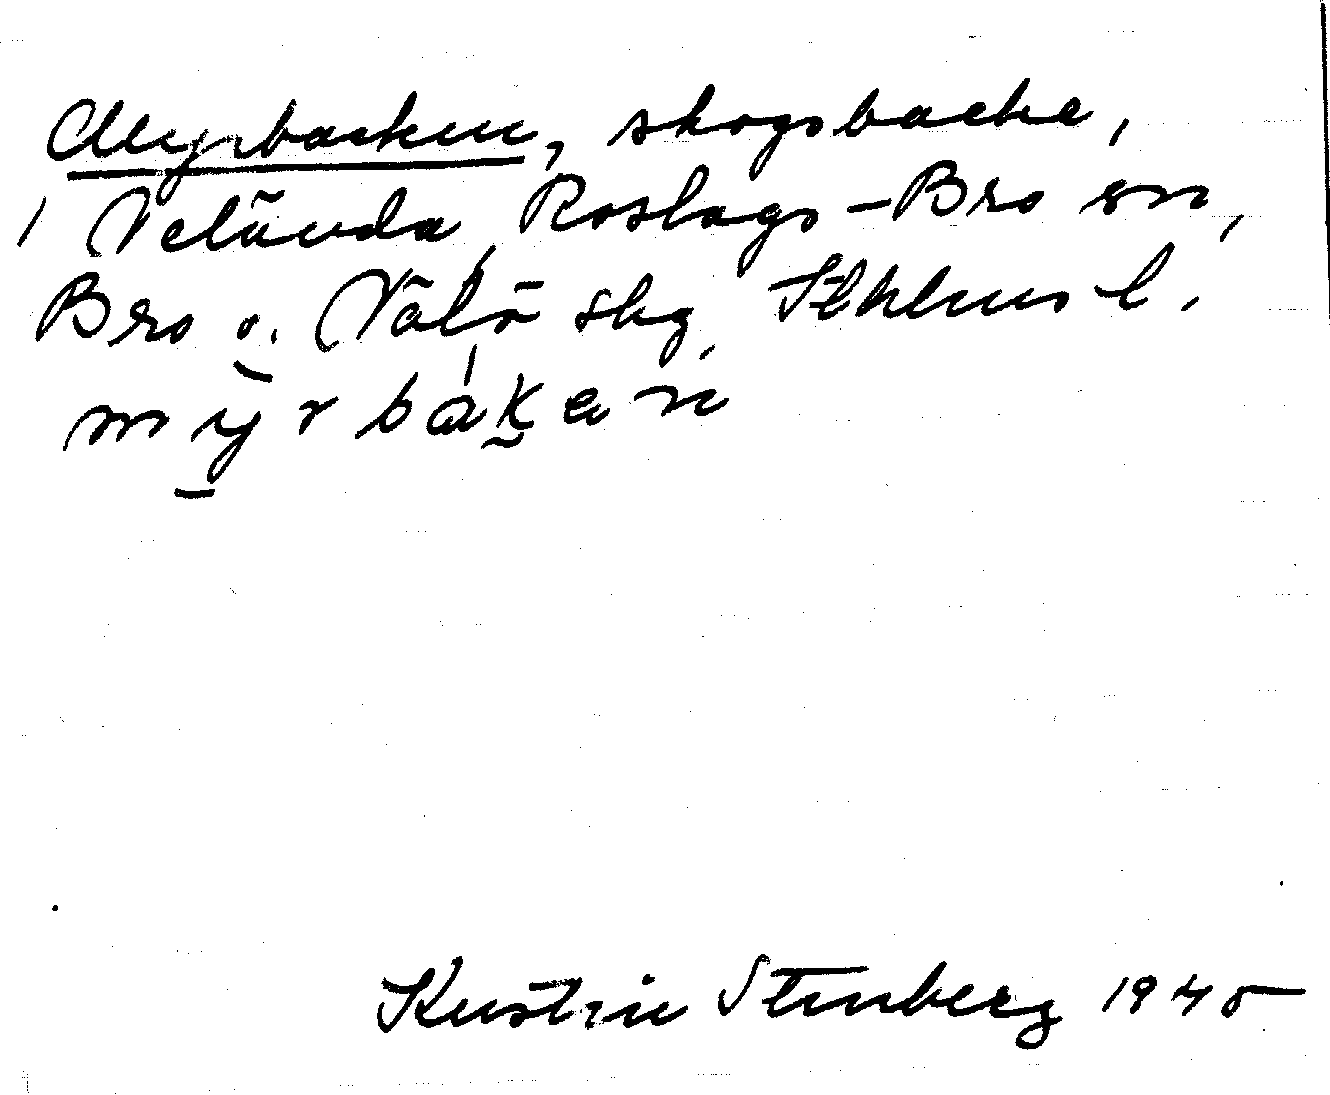 Myrbacken, skogsbacke,
i Velånda, Roslags-Bro sn,
Bro o. Vätö skg, Sthlms l.
myrbaken
Kerstin Stenberg 1945